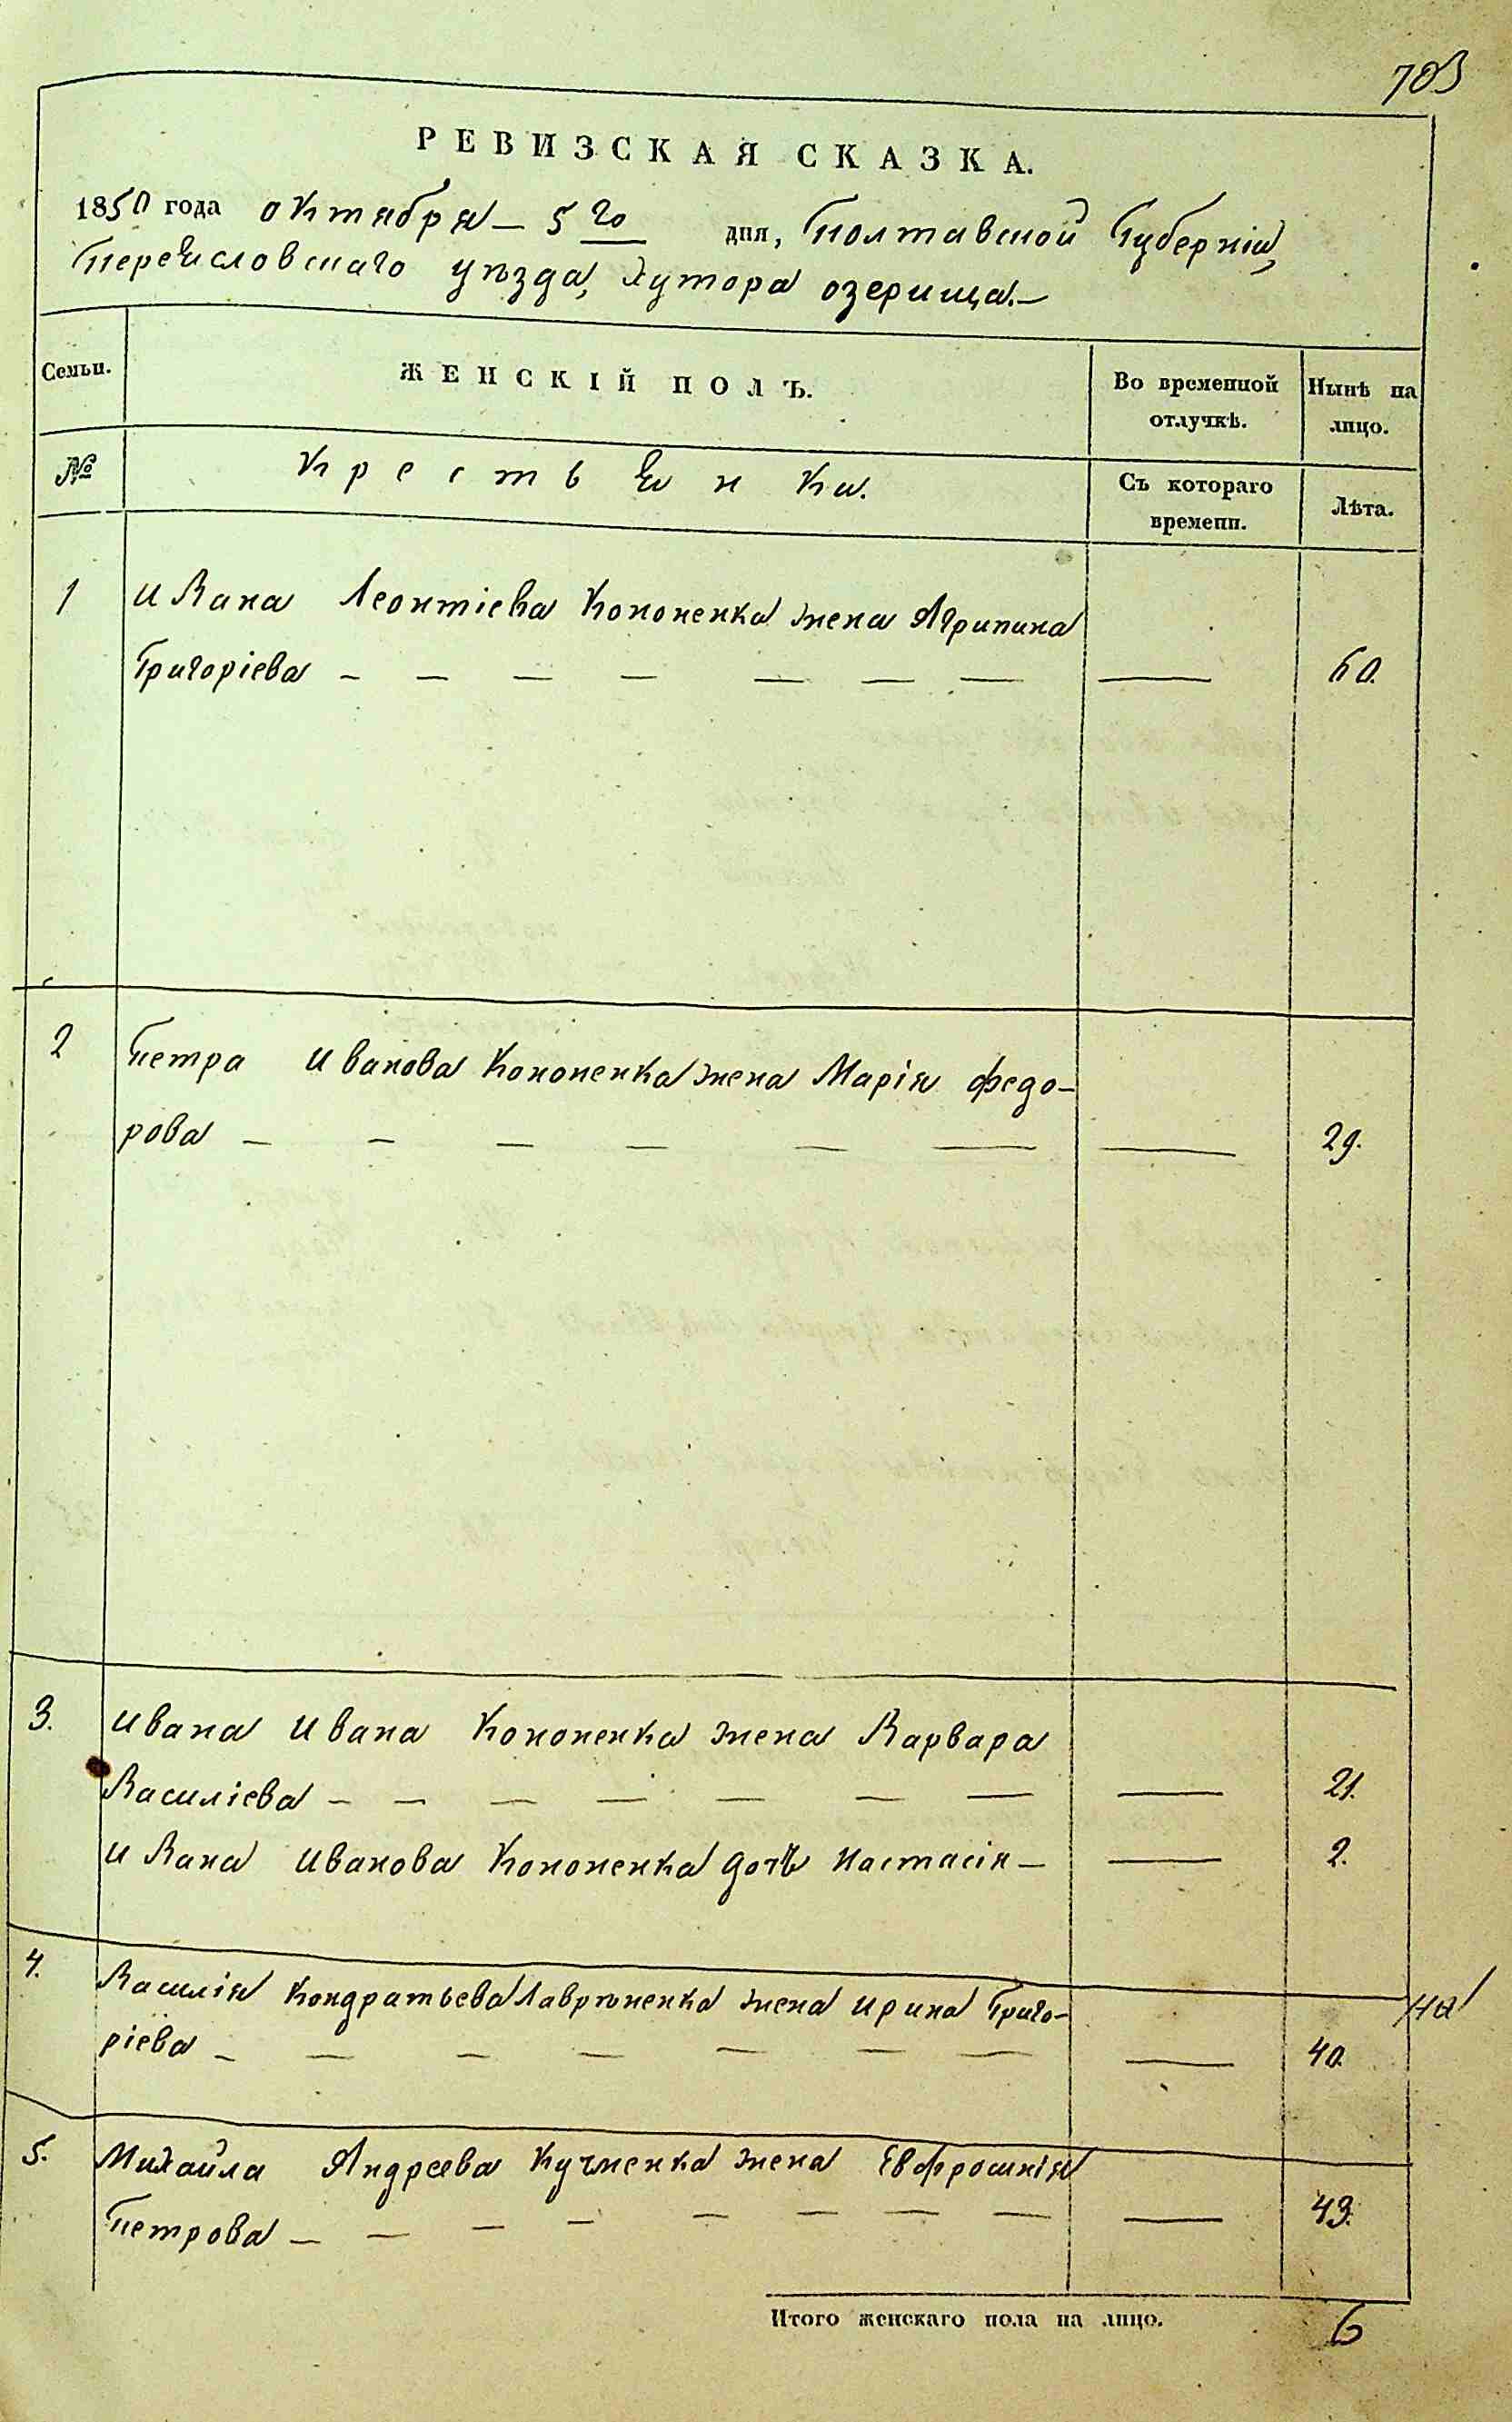 703
РЕВИЗСКАЯ СКАЗКА.
1850 года октября — 5го дня, Полтавской Губерніи,
Переясловскаго уѣзда, Хутора озерища.—
Семьи. ЖЕНСКІЙ ПОЛЪ. Во временной отлучкѣ. Нынѣ на лицо.
№ Крестьянки. Съ котораго времени. Лѣта.
1 Ивана Леонтіева Кононенка жена Агрипина
Григоріева — — — — — — — — 60.
2 Петра Иванова Кононенка жена Марія Федо-
рова — — — — — — — 29.
3. Ивана Ивана Кононенка жена Варвара
Василіева — — — — — — — — 21.
Ивана Иванова Кононенка дочь Настасія — — 2.
4. Василія Кондратьева Лавріоненка жена Ирина Григо-
ріева — — — — — — — — 40.
на
5. Михайла Андреева Кучменка жена Евфросинія
Петрова — — — — — — — — 43.
Итого женскаго пола на лицо. 6